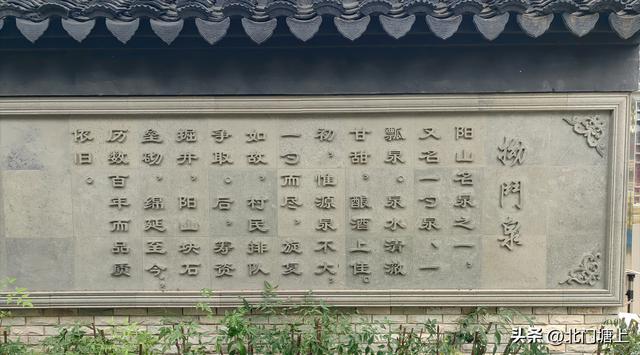 拗鬥泉
阳山名泉之一，
又名一勺泉、一
瓢泉。泉水清澈
甘甜，酿酒上佳。
初，惟源泉不大，
一勺而尽，旋复
如故，村民排队
争取。后，筹资
掘井，阳山块石
垒砌，绵延至今。
历数百年而品质
依旧。
头条 @北门塘上